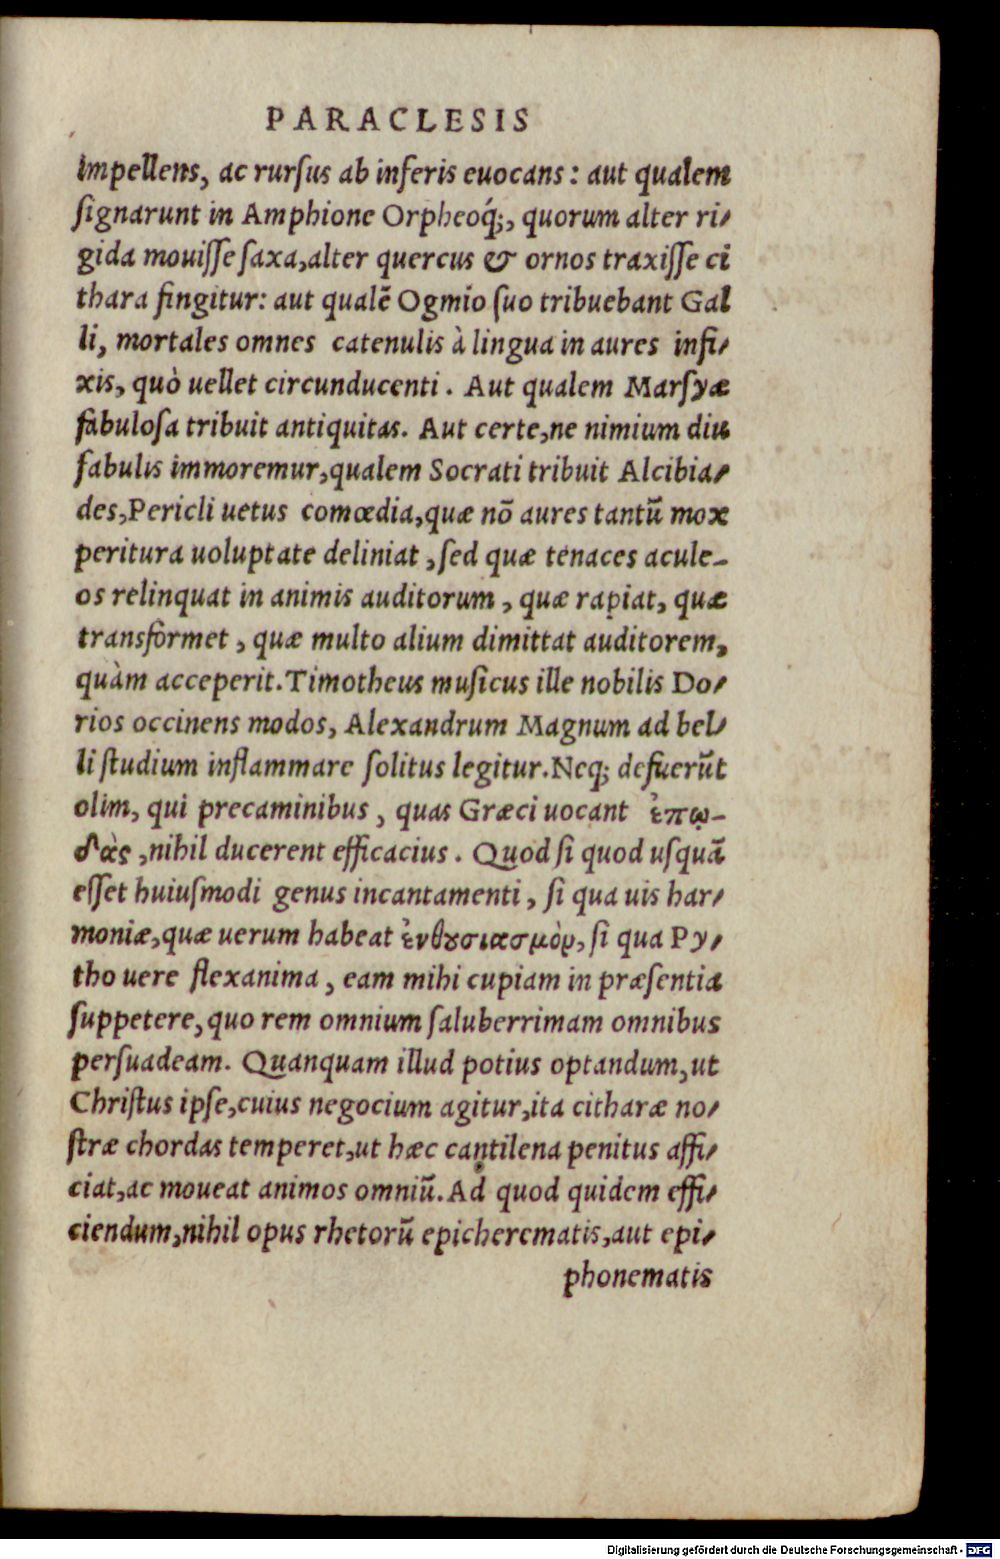 PARACLESIS
impellens, ac rurſus ab inferis euocans : aut qualem
ſignarunt in Amphione Orpheoq́;, quorum alter ri⸗
gida mouiſſe ſaxa,alter quercus & ornos traxiſſe ci
thara fingitur: aut qualẽ Ogmio ſuo tribuebant Gal
li, mortales omnes catenulis à lingua in aures infi⸗
xis, quò uellet circunducenti . Aut qualem Marſyæ
fabuloſa tribuit antiquitas. Aut certe,ne nimium diu
fabulis immoremur,qualem Socrati tribuit Alcibia⸗
des,Pericli uetus comœdia,quæ nõ aures tantũ mox
peritura uoluptate deliniat ,ſed quæ tenaces acule-
os relinquat in animis auditorum , quæ rapiat, quæ
transformet , quæ multo alium dimittat auditorem,
quàm acceperit.Timotheus muſicus ille nobilis Do⸗
rios occinens modos, Alexandrum Magnum ad bel⸗
li ſtudium inflammare ſolitus legitur.Neq; defuerũt
olim, qui precaminibus , quas Græci uocant ἐπῳ-
δὰς ,nihil ducerent efficacius . Quod ſi quod uſquã
eſſet huiuſmodi genus incantamenti , ſi qua uis har⸗
moniæ,quæ uerum habeat ἐνθȣσιασμὸν, ſi qua Py⸗
tho uere flexanima , eam mihi cupiam in præſentia
ſuppetere,quo rem omnium ſaluberrimam omnibus
perſuadeam. Quanquam illud potius optandum,ut
Chriſtus ipſe,cuius negocium agitur,ita citharæ no⸗
ſtræ chordas temperet,ut hæc cantilena penitus affi⸗
ciat,ac moueat animos omniũ.Ad quod quidem effi⸗
ciendum,nihil opus rhetorũ epicherematis,aut epi⸗
phonematis
Digitalisierung gefördert durch die Deutsche Forschungsgemeinschaft - DFG